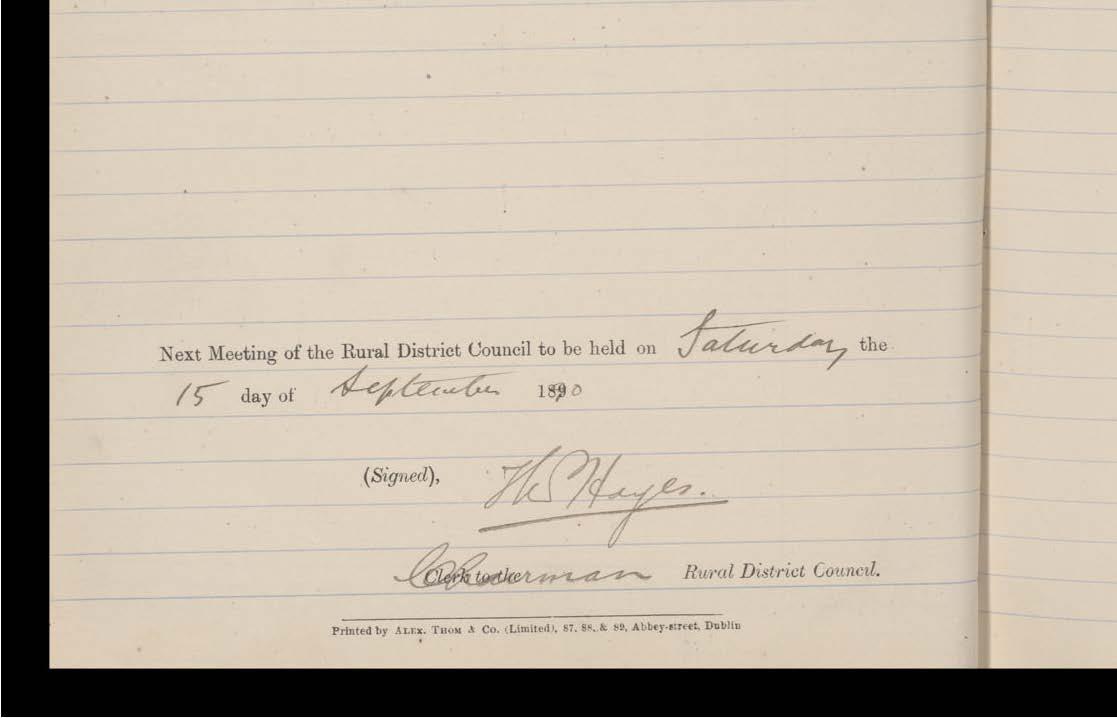 Next Meeting of the Rural District Council to be held on Saturday the
15 day of September 1890
(Signed), Ths Hayes.
Chairman Rural District Council.
Printed by ALEX. THOM & Co. (Limited), 87, 88, & 89, Abbey-street, Dublin